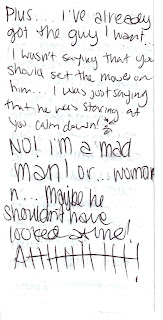 Plus... I've already
got the guy I want...
I wasn't saying that you
should set the moves on
him... I was just saying
that he was staring at
you. calm down!
NO! I'm a mad
man! or... woman
n... maybe he
shouldn't have
looked at me!
AHHHHHHHH!